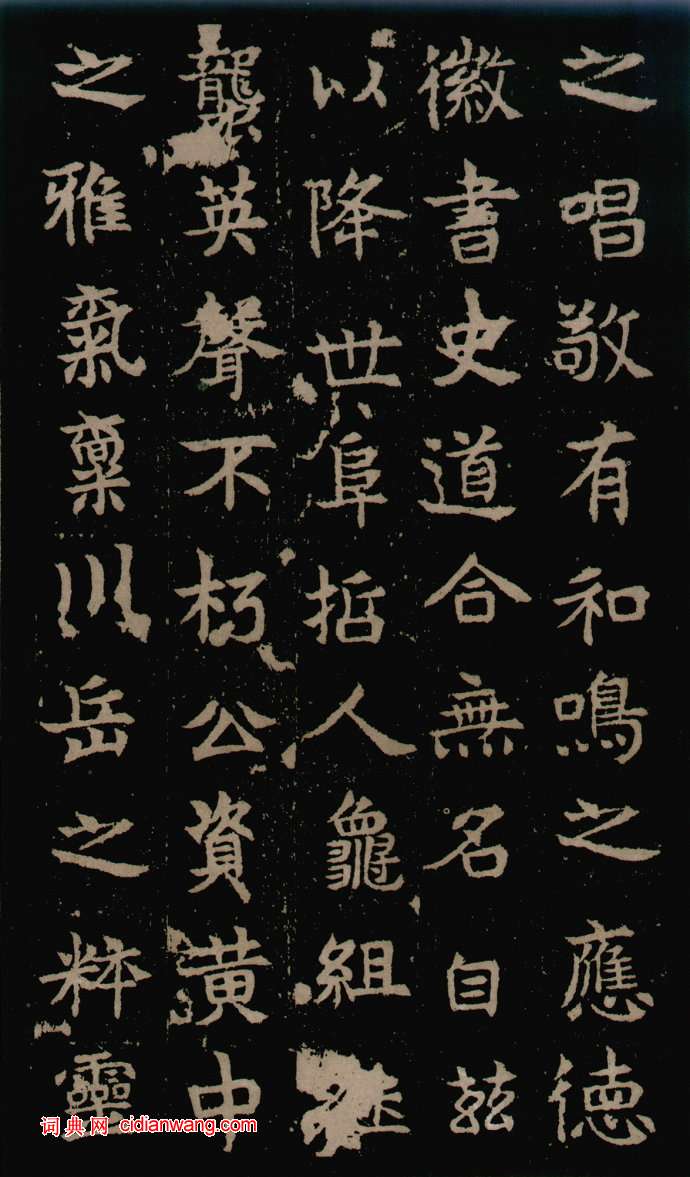 之唱敬有和鳴之應徳
徽書史道合無名自玆
以降世阜哲人龜組
襲英聲不朽公資黄中
之雅氣稟川岳之粹靈
词典网 cidianwang.com